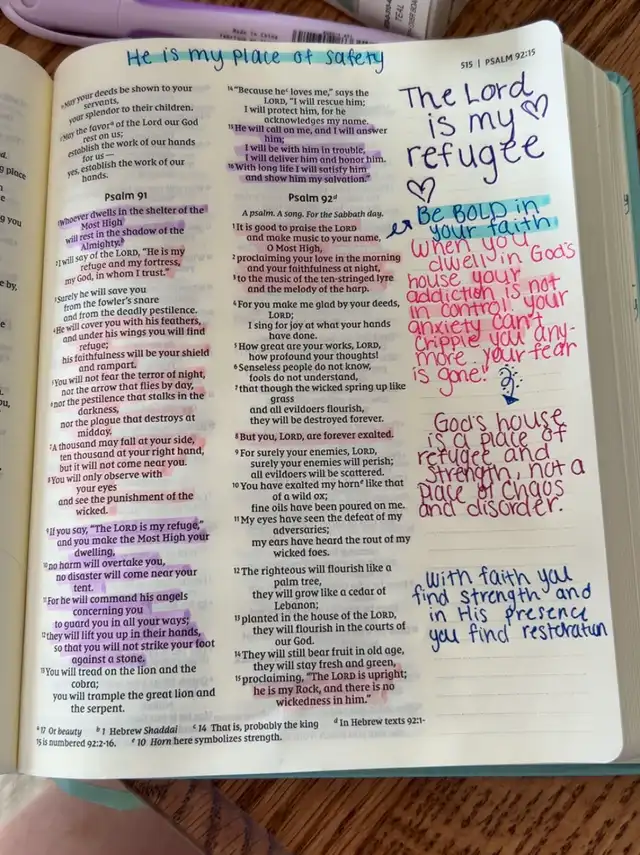 TEAL
He is my place of safety
515 | PSALM 92:15
g place
g you
e by,
ou,
May your deeds be shown to your
servants,
your splendor to their children.
May the favorᵃ of the Lord our God
rest on us;
establish the work of our hands
for us—
yes, establish the work of our
hands.
Psalm 91
1 Whoever dwells in the shelter of the
Most High
will rest in the shadow of the
Almighty.ᵇ
2 I will say of the LORD, “He is my
refuge and my fortress,
my God, in whom I trust.”
3 Surely he will save you
from the fowler's snare
and from the deadly pestilence.
4 He will cover you with his feathers,
and under his wings you will find
refuge;
his faithfulness will be your shield
and rampart.
5 You will not fear the terror of night,
nor the arrow that flies by day,
6 nor the pestilence that stalks in the
darkness,
nor the plague that destroys at
midday.
7 A thousand may fall at your side,
ten thousand at your right hand,
but it will not come near you.
8 You will only observe with
your eyes
and see the punishment of the
wicked.
9 If you say, “The LORD is my refuge,”
and you make the Most High your
dwelling,
10 no harm will overtake you,
no disaster will come near your
tent.
11 For he will command his angels
concerning you
to guard you in all your ways;
12 they will lift you up in their hands,
so that you will not strike your foot
against a stone.
13 You will tread on the lion and the
cobra;
you will trample the great lion and
the serpent.
14 “Because heᶜ loves me,” says the
LORD, “I will rescue him;
I will protect him, for he
acknowledges my name.
15 He will call on me, and I will answer
him;
I will be with him in trouble,
I will deliver him and honor him.
16 With long life I will satisfy him
and show him my salvation.”
Psalm 92ᵈ
A psalm. A song. For the Sabbath day.
1 It is good to praise the LORD
and make music to your name,
O Most High,
2 proclaiming your love in the morning
and your faithfulness at night,
3 to the music of the ten-stringed lyre
and the melody of the harp.
4 For you make me glad by your deeds,
LORD;
I sing for joy at what your hands
have done.
5 How great are your works, LORD,
how profound your thoughts!
6 Senseless people do not know,
fools do not understand,
7 that though the wicked spring up like
grass
and all evildoers flourish,
they will be destroyed forever.
8 But you, LORD, are forever exalted.
9 For surely your enemies, LORD,
surely your enemies will perish;
all evildoers will be scattered.
10 You have exalted my hornᵉ like that
of a wild ox;
fine oils have been poured on me.
11 My eyes have seen the defeat of my
adversaries;
my ears have heard the rout of my
wicked foes.
12 The righteous will flourish like a
palm tree,
they will grow like a cedar of
Lebanon;
13 planted in the house of the LORD,
they will flourish in the courts of
our God.
14 They will still bear fruit in old age,
they will stay fresh and green,
15 proclaiming, “The LORD is upright;
he is my Rock, and there is no
wickedness in him.”
ᵃ 17 Or beauty ᵇ 1 Hebrew Shaddai ᶜ 14 That is, probably the king ᵈ In Hebrew texts 92:1-
15 is numbered 92:2-16. ᵉ 10 Horn here symbolizes strength.
The Lord
is my
refugee
Be BOLD in
your faith
When you
dwell in God's
house your
addiction is not
in control. your
anxiety can't
cripple you any-
more. your fear
is gone!
God's house
is a place of
refugee and
strength, not a
place of chaos
and disorder.
with faith you
find strength and
in His presence
you find restoration